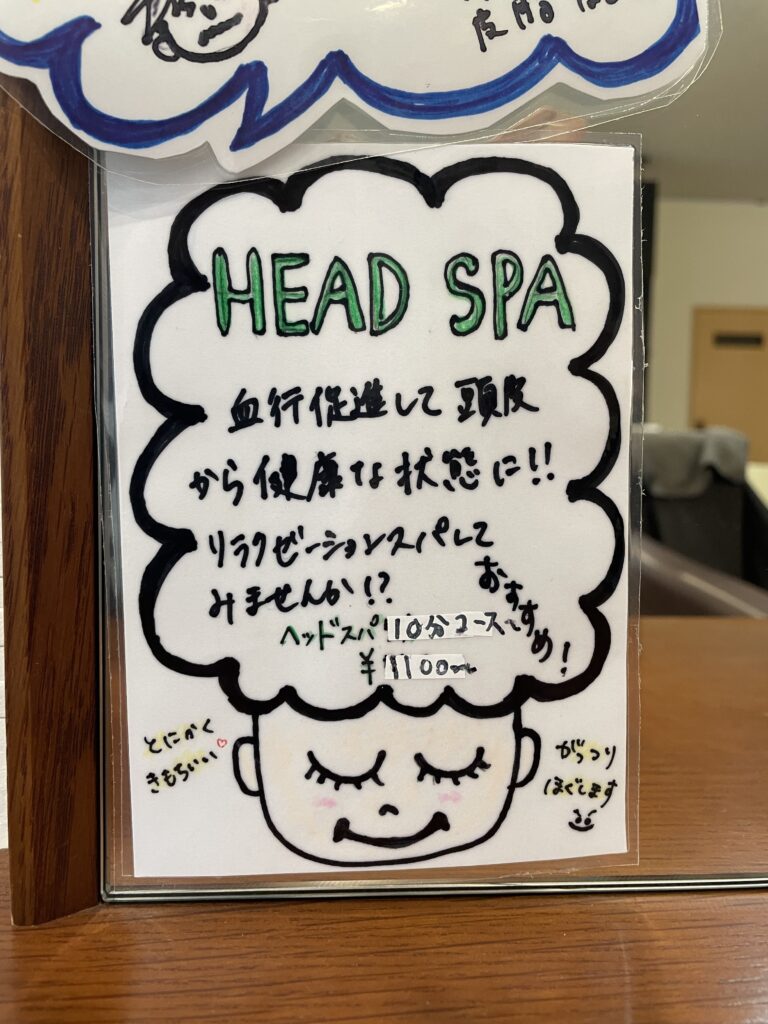 HEAD SPA
血行促進して頭皮
から健康な状態に!!
リラクゼーションスパして
みませんか!?
おすすめ!
ヘッドスパ 10分コース~
¥1100~
とにかく
きもちいい♡
がっつり
ほぐします